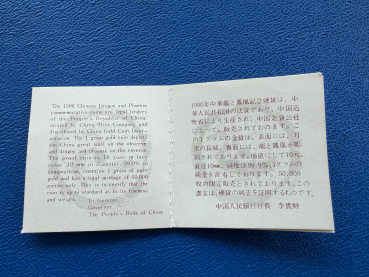 The 1990 Chinese Dragon and Phoenix
commemorative coins are legal tenders
of the People's Republic of China,
minted by China Mint Company and
distributed by China Gold Coin Incor-
poration. The 1 gram gold coin depicts
the China great wall on the obverse
and dragon and phoenix on the reverse.
The proof coin is 10 yuan in face
value, 10 mm in diameter, 99.9% in
composition, contains 1 gram of pure
gold and has a total mintage of 50,000
pieces only. This is to certify that the
coin is up to standard as to its fineness
and weight.
Li Guixian
Governor
The People's Bank of China
1990年中華龍と鳳凰記念硬貨は、中
華人民共和国の法貨であり、中国造
幣公司により生産され、中国金貨公司
によって、販売されております。こ
の1グラムの金貨は、表面には、万
里の長城、裏面には、龍と鳳凰が彫
刻されております。価値にして10元、
直径10mm、純度は99.9%、1グラムの
純金を含有しております。50,000
枚の限定販売とされております。この
書文は、硬貨の純正を証明するものです。
中国人民銀行行長 李貴鮮